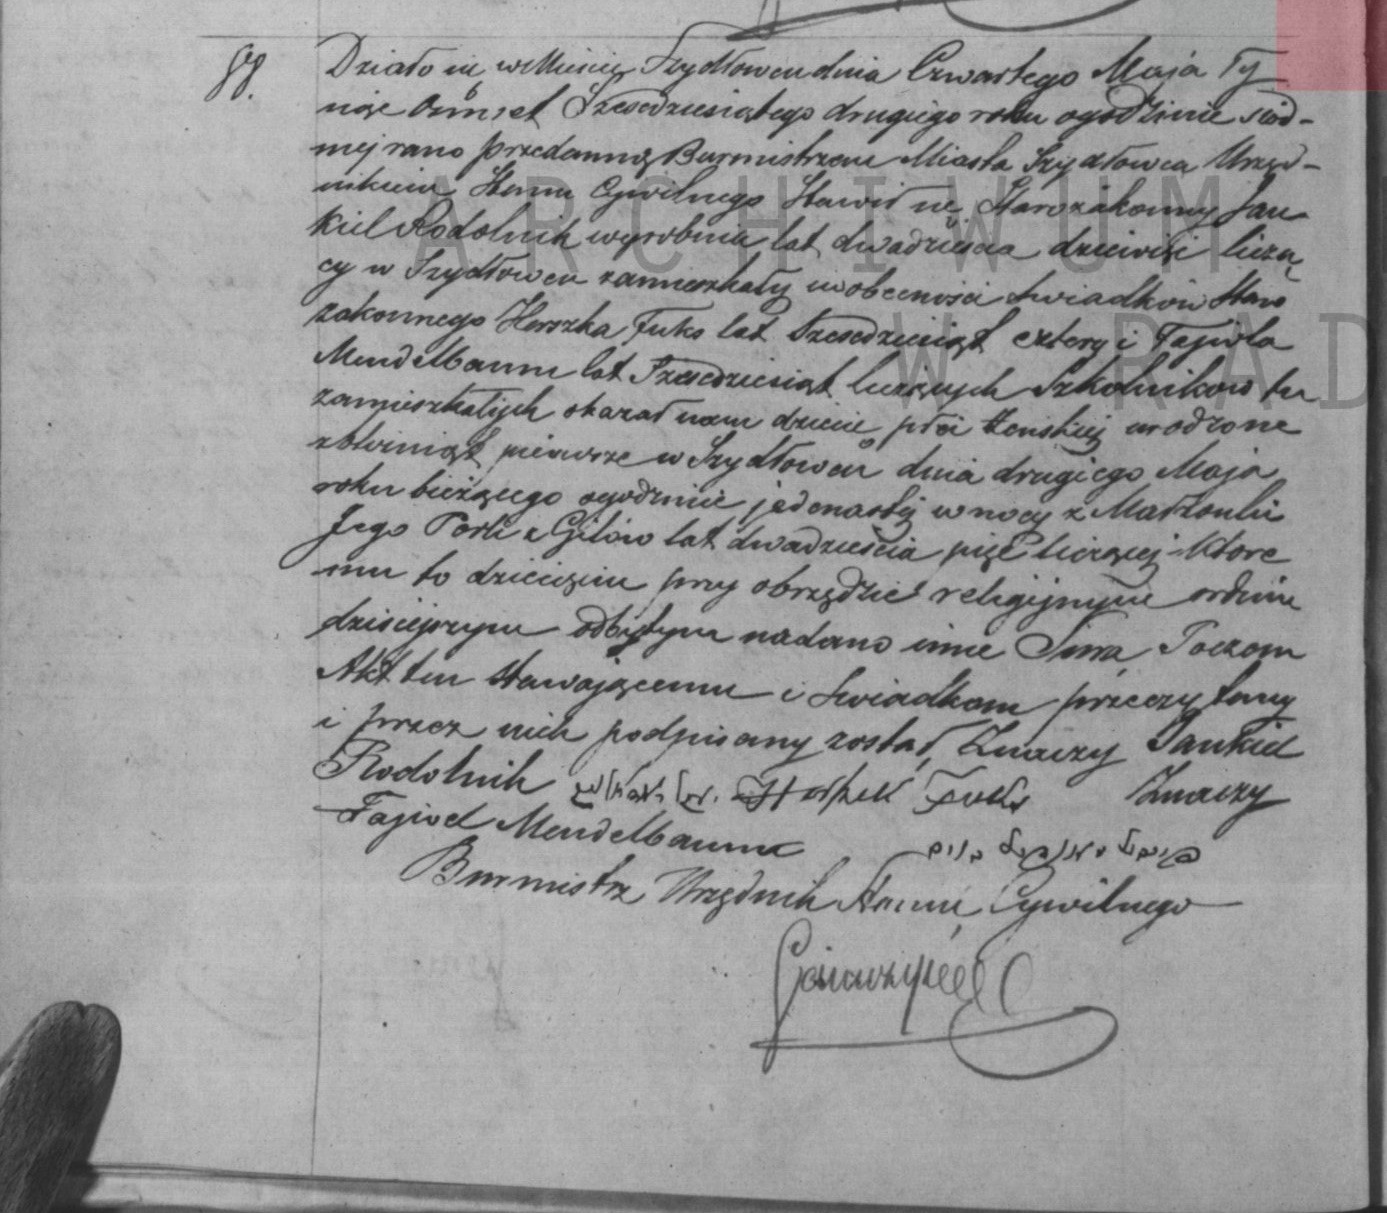 88. Działo się w Mieście Szydłowcu dnia Czwartego Maja Ty
siąc Ośmset Sześćdziesiątego drugiego roku ogodzinie siód-
mej rano przedemną Burmistrzem Miasta Szydłowca Urzęd-
nikiem Stanu Cywilnego Stawił się Starozakonny Jan
kiel Rodolnik wyrobnik lat dwadzieścia dziewięć liczą
cy w Szydłowcu zamieszkały w obecności świadków Staro
zakonnego Herszka Fuks lat Sześćdziesiąt cztery i Fajwla
Mendelbaum lat Sześćdziesiąt liczących Szkolników tu
zamieszkałych okazał nam dziecię płci żeńskiej urodzone
z bliźniąt pierwsze w Szydłowcu dnia drugiego Maja
roku bieżącego ogodzinie jedenastej w nocy z Małżonki
Jego Perli z Gilów lat dwadzieścia pięć liczącej które
mu to dziecięciu przy obrzędzie religijnym w dniu
dzisiejszym odbytym nadano imie Sura Poczem
Akt ten stawającemu i świadkom przeczytany
i przez nich podpisany został, Znaczy Jankiel
Rodolnik Znaczy
Fajwel Mendelbaum
Burmistrz Urzędnik Stanu Cywilnego
ARCHIWUM
W RAD